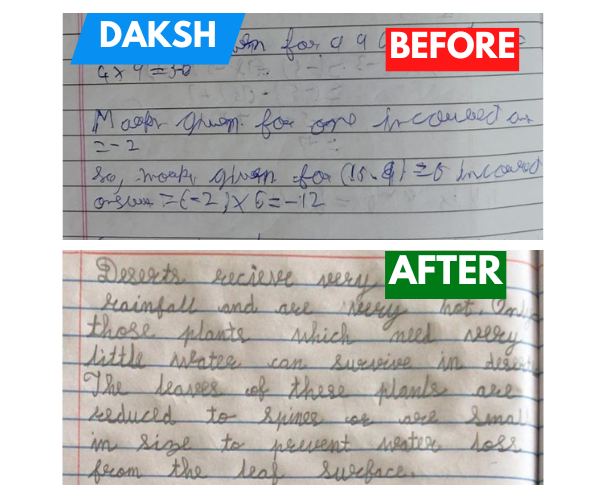 DAKSH
BEFORE
for 9
4 x 9 = 36
Marks given for one incorrect an
= -2
So, marks given for (15 - 9) = 6 incorrect
answer = (-2) x 6 = -12
AFTER
Deserts recieve very
rainfall and are very hot. On
those plants which need very
little water can survive in desert
The leaves of these plants are
reduced to spines or are small
in size to prevent water loss
from the leaf surface.